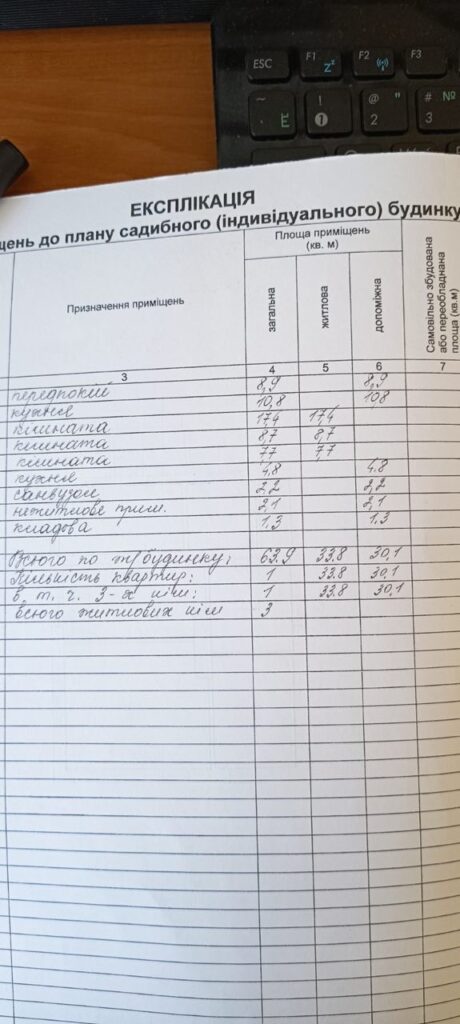 ESC
F1
F2
F3
~ Ё
! 1
@ " 2
# № 3
ЕКСПЛІКАЦІЯ
щень до плану садибного (індивідуального) будинку
Призначення приміщень
Площа приміщень
(кв. м)
загальна
житлова
допоміжна
Самовільно збудована
або переобладнана
площа (кв.м)
3 4 5 6 7
передпокій 8,9 8,9
кухня 10,8 10,8
кімната 17,4 17,4
кімната 8,7 8,7
кімната 7,7 7,7
кухня 4.8 4.8
санвузол 2,2 2,2
нежитлове прим. 2,1 2,1
кладова 1.3 1.3
Всього по ж/будинку: 63.9 33.8 30,1
Кількість квартир: 1 33.8 30.1
в т. ч. 3-х кім: 1 33.8 30,1
всього житлових кімн 3